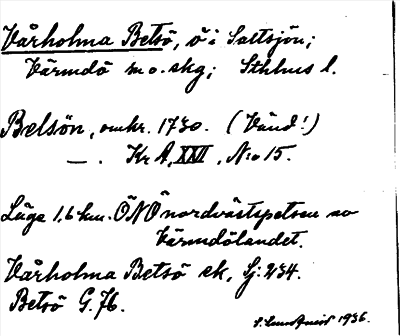 Vårholma Betsö, ö i Saltsjön;
Värmdö m o. skg; Sthlms l.
Betsön, omkr. 1730. (Vänd!)
— . Kr A, XXII, N:o 15.
Läge 1,6 km. ÖNÖ nordvästspetsen av
Värmdölandet.
Vårholma Betsö ek, Sj: 234.
Betsö G. 76.
1936.